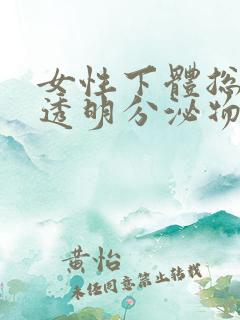 女性下體總
透明分泌物
黄怡
未经同意禁止转载